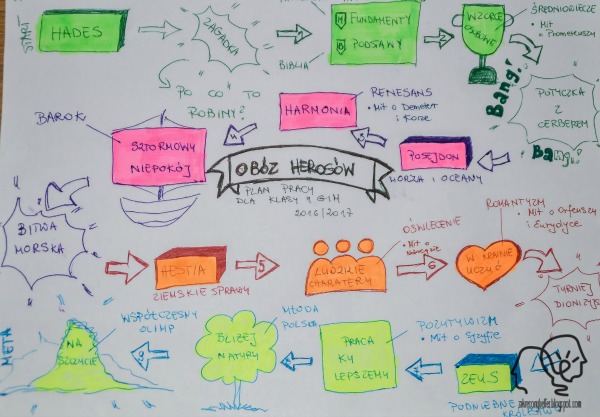 START
HADES
ZAGADKA
PO CO TO
ROBIMY?
1
FUNDAMENTY
PODSTAWY
BIBLIA
2
WZORCE
OSOBOWE
ŚREDNIOWIECZE
• Mit
o
Prometeuszu
Bang!
POTYCZKA
Z
CERBEREM
Bang!
POSEJDON
MORZA I OCEANY
3
HARMONIA
RENESANS
• Mit o Demeter
i Korze
4
BAROK
SZTORMOWY
NIEPOKÓJ
OBÓZ HEROSÓW
PLAN PRACY
DLA KLASY II GIM
2016/2017
BITWA
MORSKA
HESTIA
ZIEMSKIE SPRAWY
5
LUDZKIE
CHARAKTERY
OŚWIECENIE
• Mit o
6
W KRAINIE
UCZUĆ
ROMANTYZM
• Mit o Orfeuszu
i Eurydyce
TURNIEJ
ZEUS
PODNIEBNE
7
PRACA
KU
LEPSZEMU
POZYTYWIZM
• Mit o Syzyfie
8
BLIŻEJ
NATURY
MŁODA
POLSKA
9
NA
SZCZYCIE
WSPÓŁCZESNY
OLIMP
META
zakreconybelfer.blogspot.com